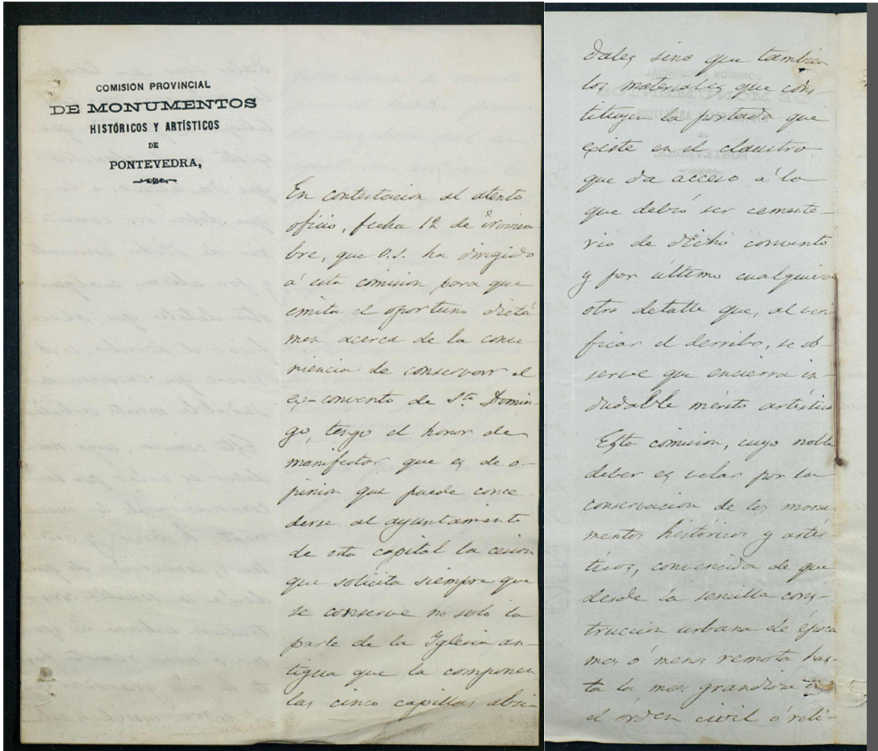 COMISION PROVINCIAL
DE MONUMENTOS
HISTÓRICOS Y ARTÍSTICOS
DE
PONTEVEDRA,
En contestacion al atento
oficio, fecha 12 de Noviem
bre, que V.S. ha dirigido
á esta comision para que
emita el oportuno dictá
men acerca de la conve
niencia de conservar el
ex-convento de Sto Domin
go, tengo el honor de
manifestar que es de o-
pinion que puede conce
derse al ayuntamiento
de esta capital la cesion
que solicita siempre que
se conserve no solo la
parte de la Iglesia an-
tigua que la componen
las cinco capillas absi-
dales sino que tambien
los materiales que cons-
tituyen la portada que
existe en el claustro
que da acceso á lo
que debió ser cemente-
rio de dicho convento
y por último cualquiera
otro detalle que, al veri
ficar el derribo, se ob-
serve que encierra in-
dudable mérito artístico
Esta comision, cuyo noble
deber es velar por la
conservacion de los monu-
mentos históricos y artís
ticos, convencida de que
desde la sencilla cons-
truccion urbana de época
mas ó menos remota has-
ta la mas grandiosa en
el órden civil ó reli-